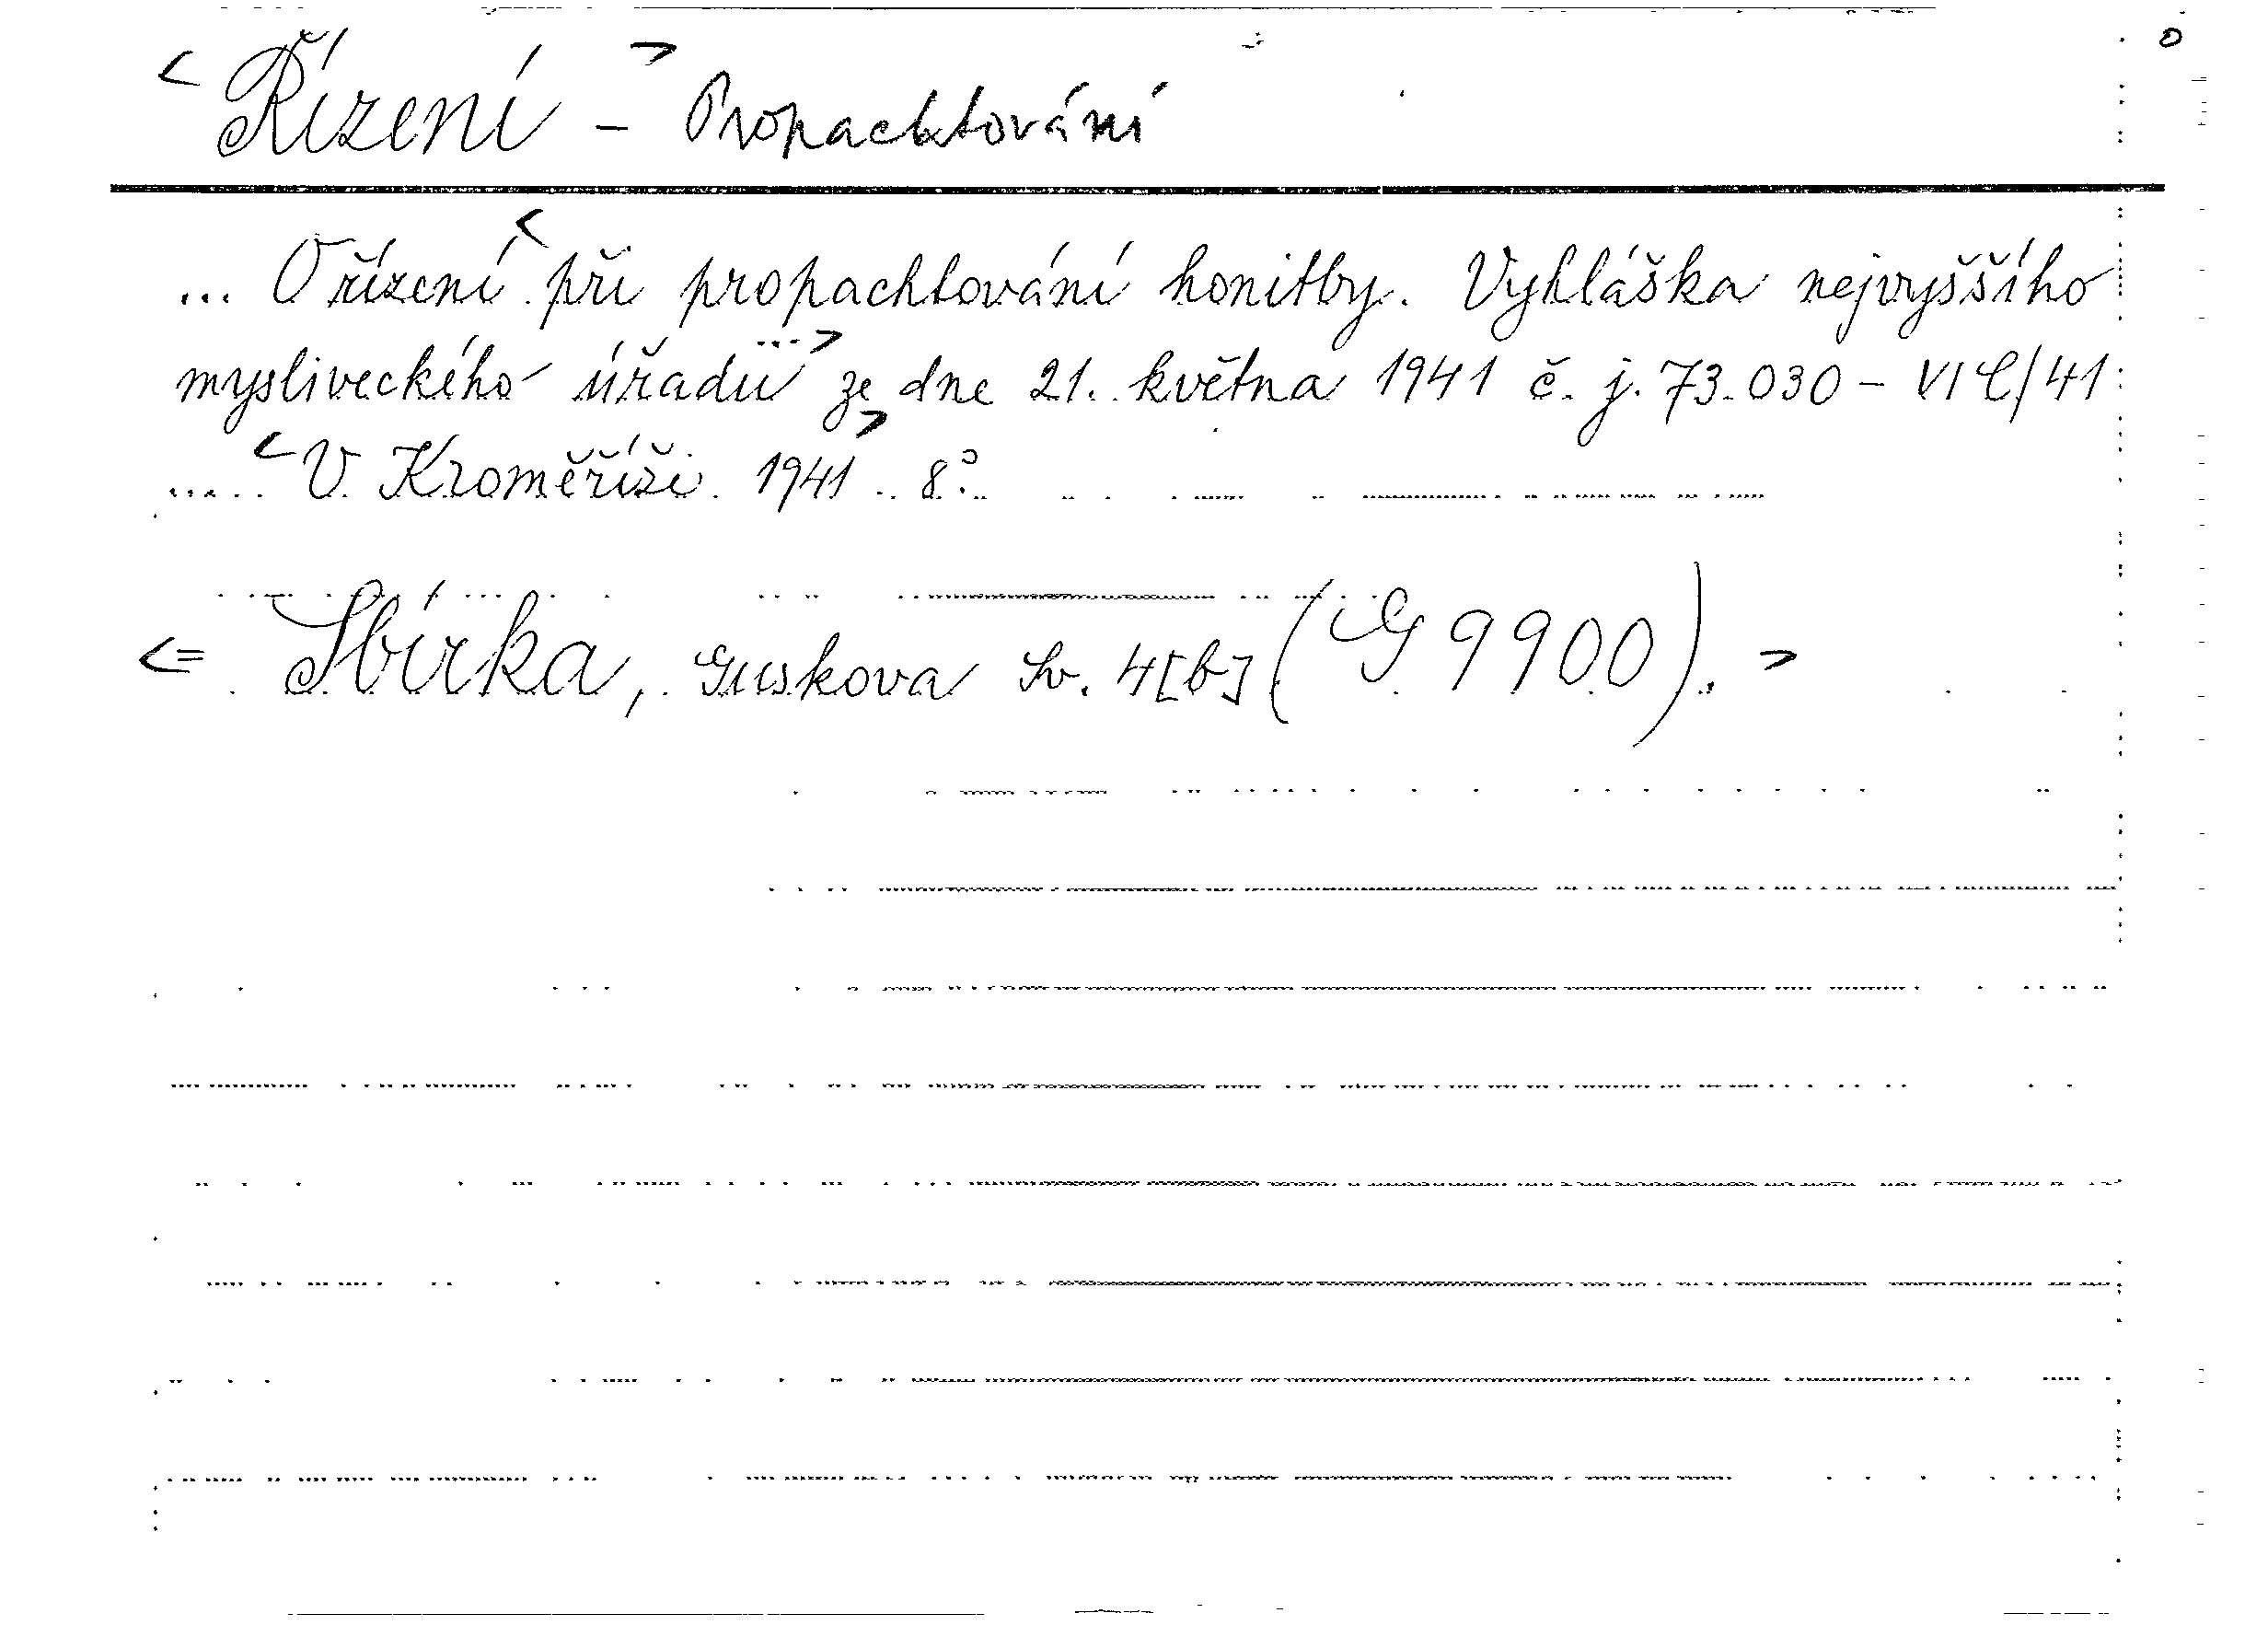 < Řízení > - Propachtování
... O řízení < při propachtování honitby. Vyhláška nejvyššího
mysliveckého úřadu ... > ze dne 21. května 1941 č. j. 73.030 - VI C/41
< V Kroměříži 1941 > 8°.
<= Sbírka, Guskova Sv. 4[b] (G 9900). >